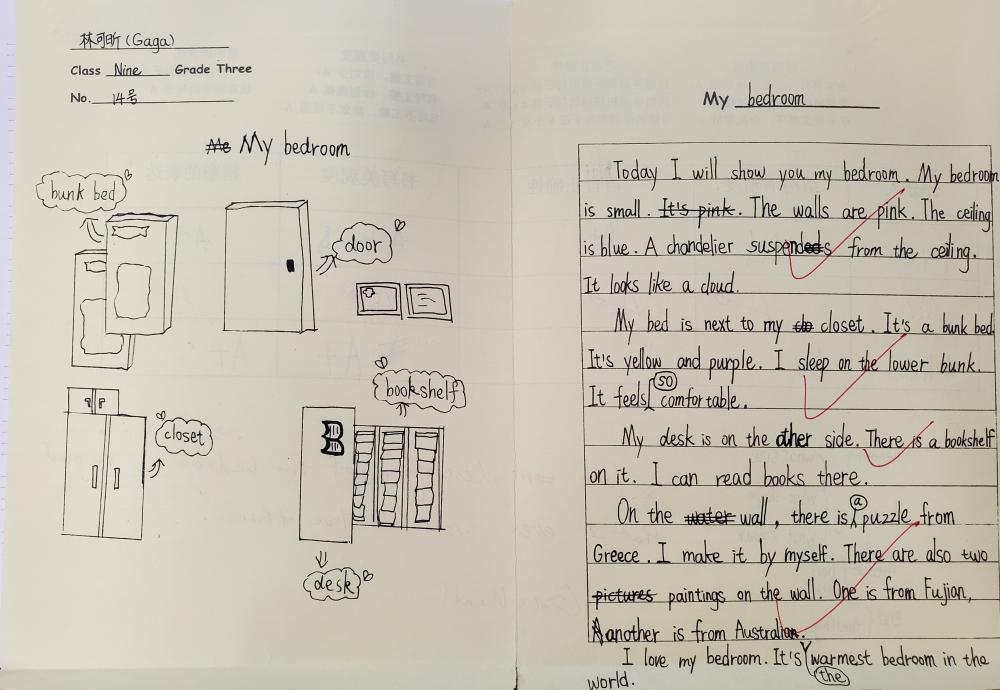 林可昕 (Gaga)
Class Nine Grade Three
No. 14号
Me My bedroom
bunk bed
door
closet
bookshelf
desk
My bedroom
Today I will show you my bedroom. My bedroom
is small. It's pink. The walls are pink. The ceiling
is blue. A chandelier suspendeds from the ceiling.
It looks like a cloud.
My bed is next to my clo closet. It's a bunk bed.
It's yellow and purple. I sleep on the lower bunk.
It feels so comfortable.
My desk is on the other side. There is a bookshelf
on it. I can read books there.
On the water wall, there is a puzzle from
Greece. I make it by myself. There are also two
pictures paintings on the wall. One is from Fujian,
another is from Australia.
I love my bedroom. It's the warmest bedroom in the
world.